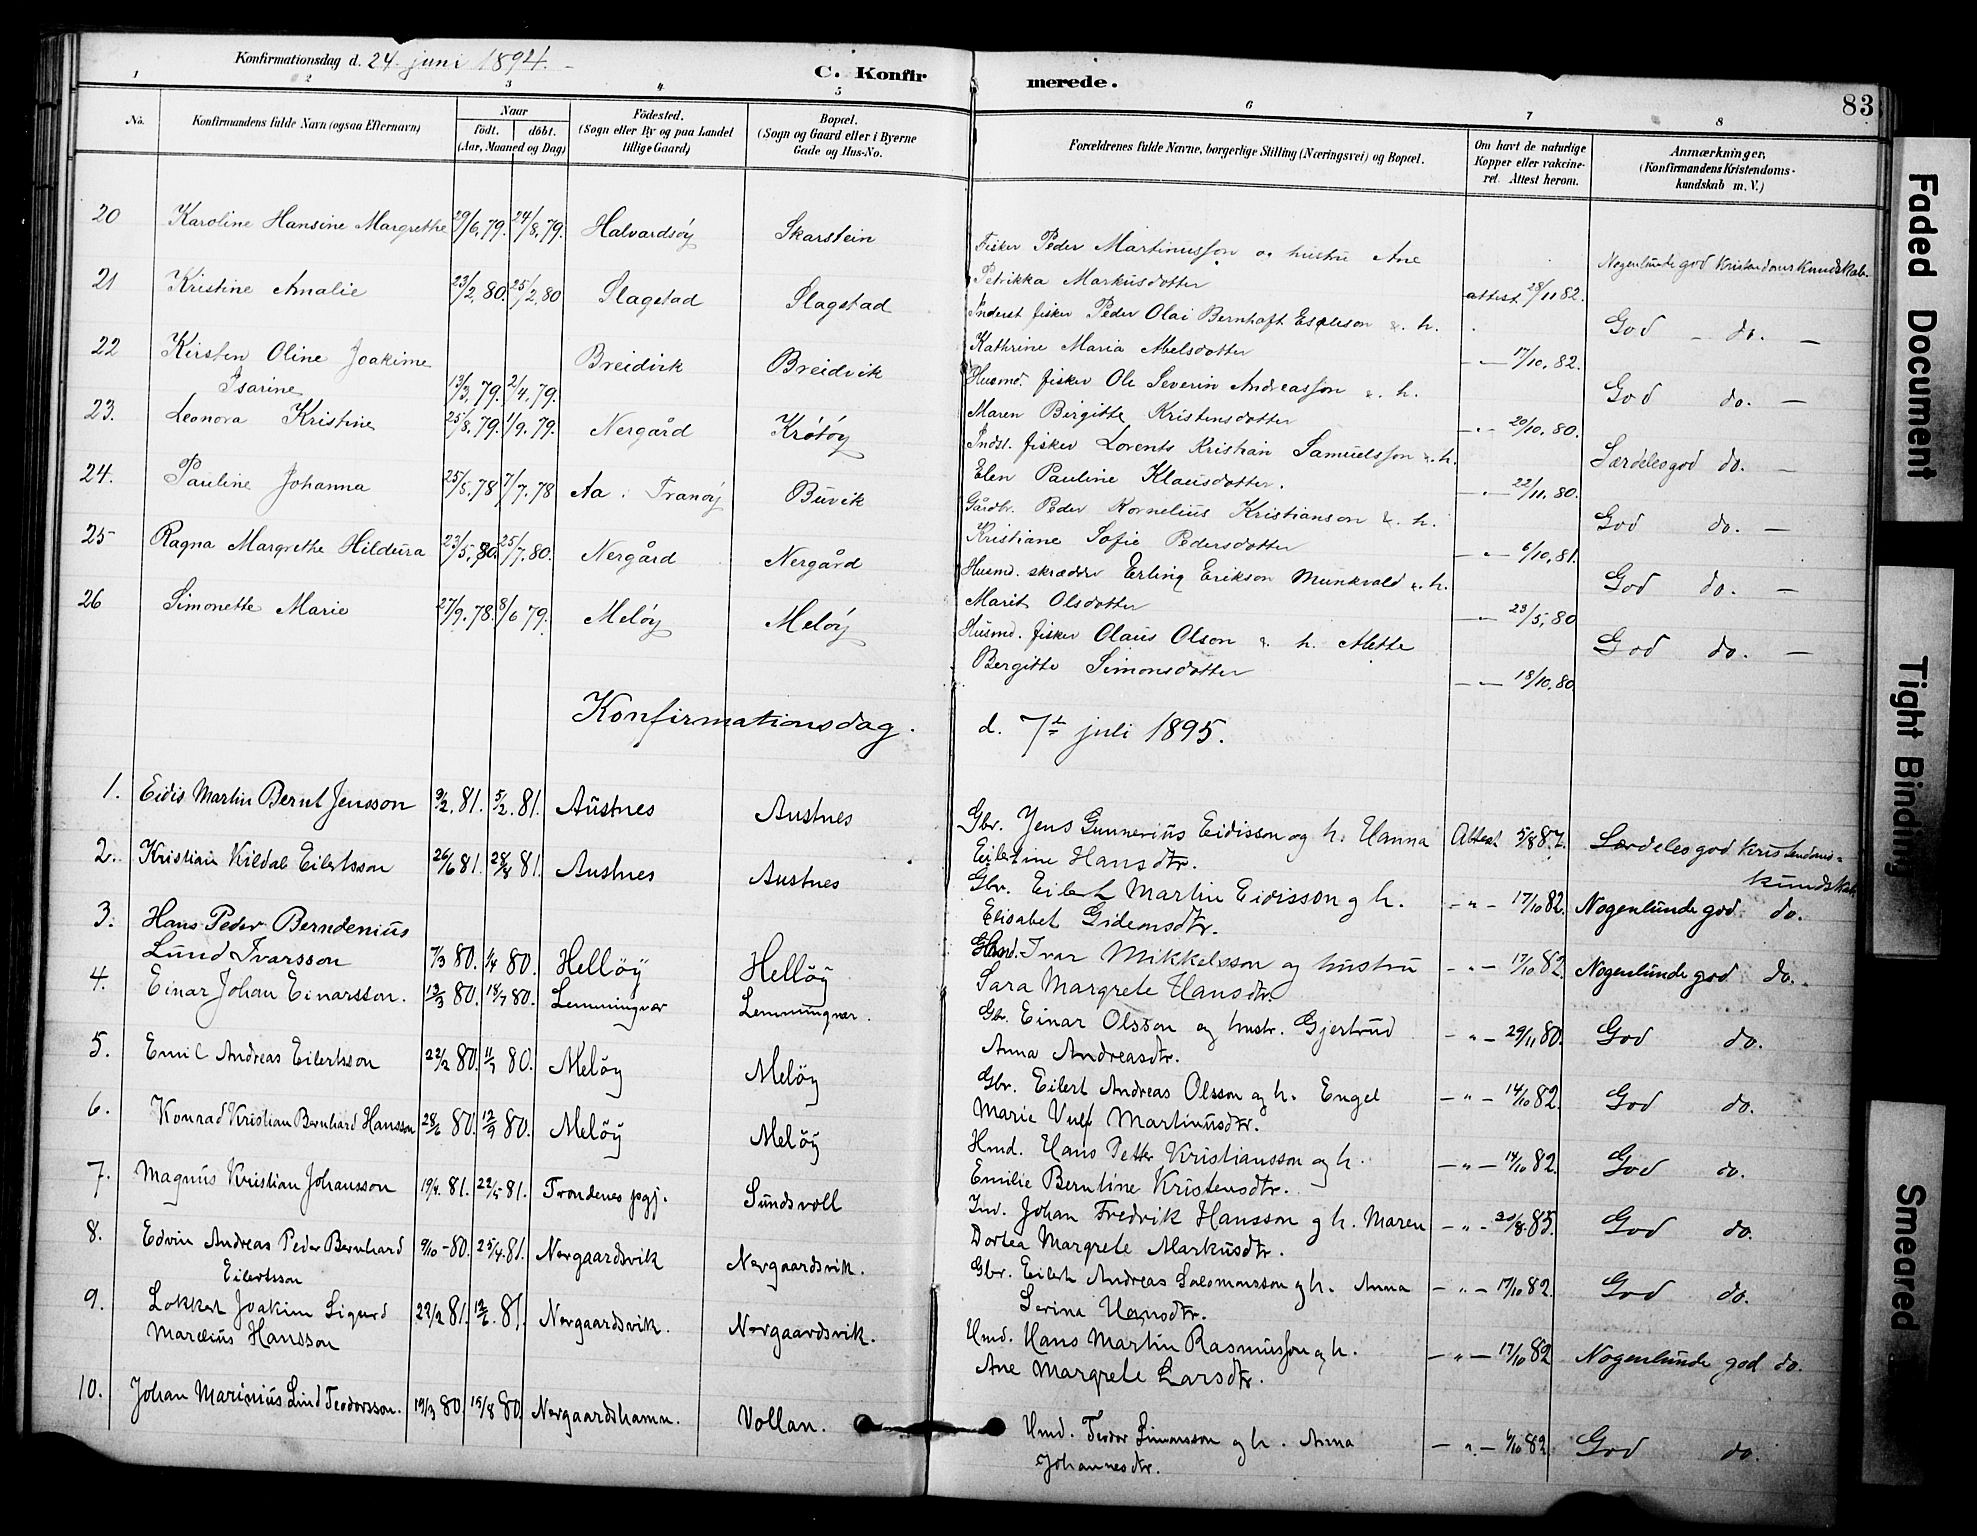 Konfirmationsdag d. 24. juni 1894.
C. Konfirmerede.
83
1 2 3 4 5 6 7 8
No.
Konfirmandens fulde Navn (ogsaa Efternavn)
Naar
født. døbt.
(Aar, Maaned og Dag)
Fødested.
(Sogn eller By og paa Landet
tillige Gaard)
Bopæl.
(Sogn og Gaard eller i Byerne
Gade og Hus-No.
Forældrenes fulde Navne, borgerlige Stilling (Næringsvei) og Bopæl.
Om havt de naturlige
Kopper eller vakcine-
ret. Attest herom.
Anmærkninger,
(Konfirmandens Kristendoms-
kundskab m. V.)
20 Karoline Hansine Margrethe 29/6. 79. 24/8. 79. Halvardsøy Skarstein
Fisker Peder Martinussøn og hustru Ane
Petrikka Markusdotter attest 28/11 82. Nogenlunde god Kristendomskundskab.
21 Kristine Amalie 23/2. 80. 25/2. 80 Slagstad Slagstad
Inderst fisker Peder Olai Bernhoft Espleson &. h.
Kathrine Maria Abelsdotter – " – 17/10. 82. God – do. –
22 Kirsten Oline Joakime
Isarine 13/3. 79. 2/4. 79. Breidvik Breidvik
Husmd. fisker Ole Severin Andreassøn &. h.
Maren Birgitte Kristensdotter – " – 20/10. 80. God do. –
23. Leonora Kristine 25/8. 79. 1/9. 79. Nergård Krøtøy
Indst. fisker Lorents Kristian Samuelssøn &. h.
Elen Pauline Klausdotter. – " – 22/11. 80. Særdeles god do. –
24. Pauline Johanna 25/5. 78 7/7. 78 Aa i Tranøy Buvik
Gårdbr. Peder Kornelius Kristianson &. h.
Kristiane Sofie Pedersdotter – " – 6/10. 81. God do. –
25 Ragna Margrethe Hildeura 23/5. 80. 25/7. 80. Nergård Nergård
Husmd. skrædder Erling Erikson Munkvold &. h.
Marit Olsdotter – " – 23/5. 80 God do. –
26 Simonette Marie 27/9. 78. 8/6 79. Meløy Meløy
Husmd. fisker Olaus Olson &. h. Alette
Bergitte Simonsdotter – " – 18/10. 80. God do. –
Konfirmationsdag. d. 7de juli 1895.
1. Eidis Martin Bernt Jensson 3/2. 81. 5/2. 81. Austnes Austnes
Gbr. Jens Gunnerius Eidisson og h. Hanna
Eilertine Hansdtr. Attest 5/8 87. Særdeles god Kristendoms-
kundskab.
2. Kristian Kildal Eilertsson 26/6 81. 28/8 81. Austnes Austnes
Gbr. Eilert Martin Eidisson og h.
Elisabet Gideonsdtr. – " – 17/10 82. Nogenlunde god do.
3. Hans Peder Berndenius
Lund Ivarsson 7/3 80. 1/4 80. Helløÿ Helløÿ
Hmd. Ivar Mikkelsson og hustru
Sara Margrete Hansdtr. – " – 17/10 82. Nogenlunde god do.
4. Einar Johan Einarsson. 12/3 80. 18/7 80. Lemmingvær Lemmingvær.
Gbr. Einar Olsson og hustr. Gjertrud
Anna Andreasdtr. – " – 29/11 80. God do.
5. Emil Andreas Eilertsson 22/2 80. 11/7 80. Meløÿ Meløÿ
Gbr. Eilert Andreas Olsson og h. Engel
Marie Vulf Martinusdtr. – " – 14/10 82. God do.
6. Konrad Kristian Bernhard Hansson 28/6 80. 12/9 80. Meløÿ Meløÿ
Hmd. Hans Petter Kristiansson og h.
Emilie Berntine Kristensdtr. – " – 14/10 82. God do.
7. Magnus Kristian Johansson 19/4. 81. 22/5 81. Trondenes psgj. Sundsvoll
Ind. Johan Fredrik Hansson og h. Maren
Dortea Margrete Markusdtr. – " – 30/8. 85. God do.
8. Edvin Andreas Peder Bernhard
Eilertsson 9/10 – 80. 25/4. 81. Nergaardsvik Nergaardsvik.
Gbr. Eilert Andreas Salomonsson og h. Anna
Serina Hansdtr. – " – 17/10 82. God do.
9. Lokkert Joakim Sigurd
Marelius Hansson 22/2 81. 12/6. 81. Nergaardsvik. Nergaardsvik.
Hmd. Hans Martin Rasmussøn og h.
Ane Margrete Larsdtr. – " – 17/10 82 Nogenlunde god do.
10. Johan Marinius Lind Teodorsson. 19/3 80. 15/8 80. Nergaardshamn. Vollan.
Hmd. Teodor Simonsson og h. Anna
Johannesdtr. – " – 6/10 82. God do.
Faded Document
Tight Binding
Smeared